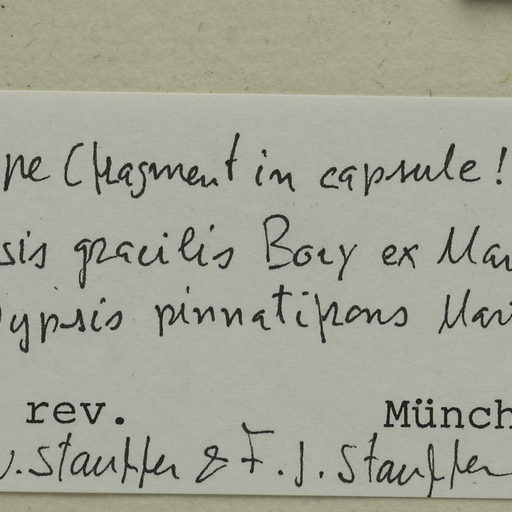 pe (fragment in capsule!
sis gracilis Bory ex Mar
Dypsis pinnatifrons Mar
rev. Münch
. Stauffer & F. J. Stauffer